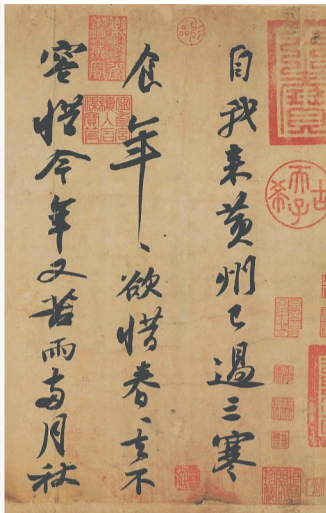 自我来黄州已過三寒
食年〻欲惜春〻去不
容惜今年又苦雨兩月秋
古希天子